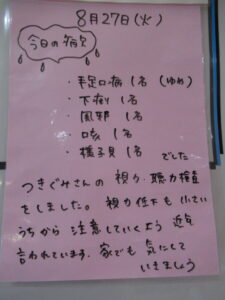 8月27日(火)
今日の病欠
・手足口病 1名 (ゆめ)
・下痢 1名
・風邪 1名
・咳 1名
・様子見 1名 でした
つきぐみさんの 視力・聴力検査
をしました。視力低下も 小さい
うちから 注意していくよう 近年
言われています。家でも 気にして
いきましょう